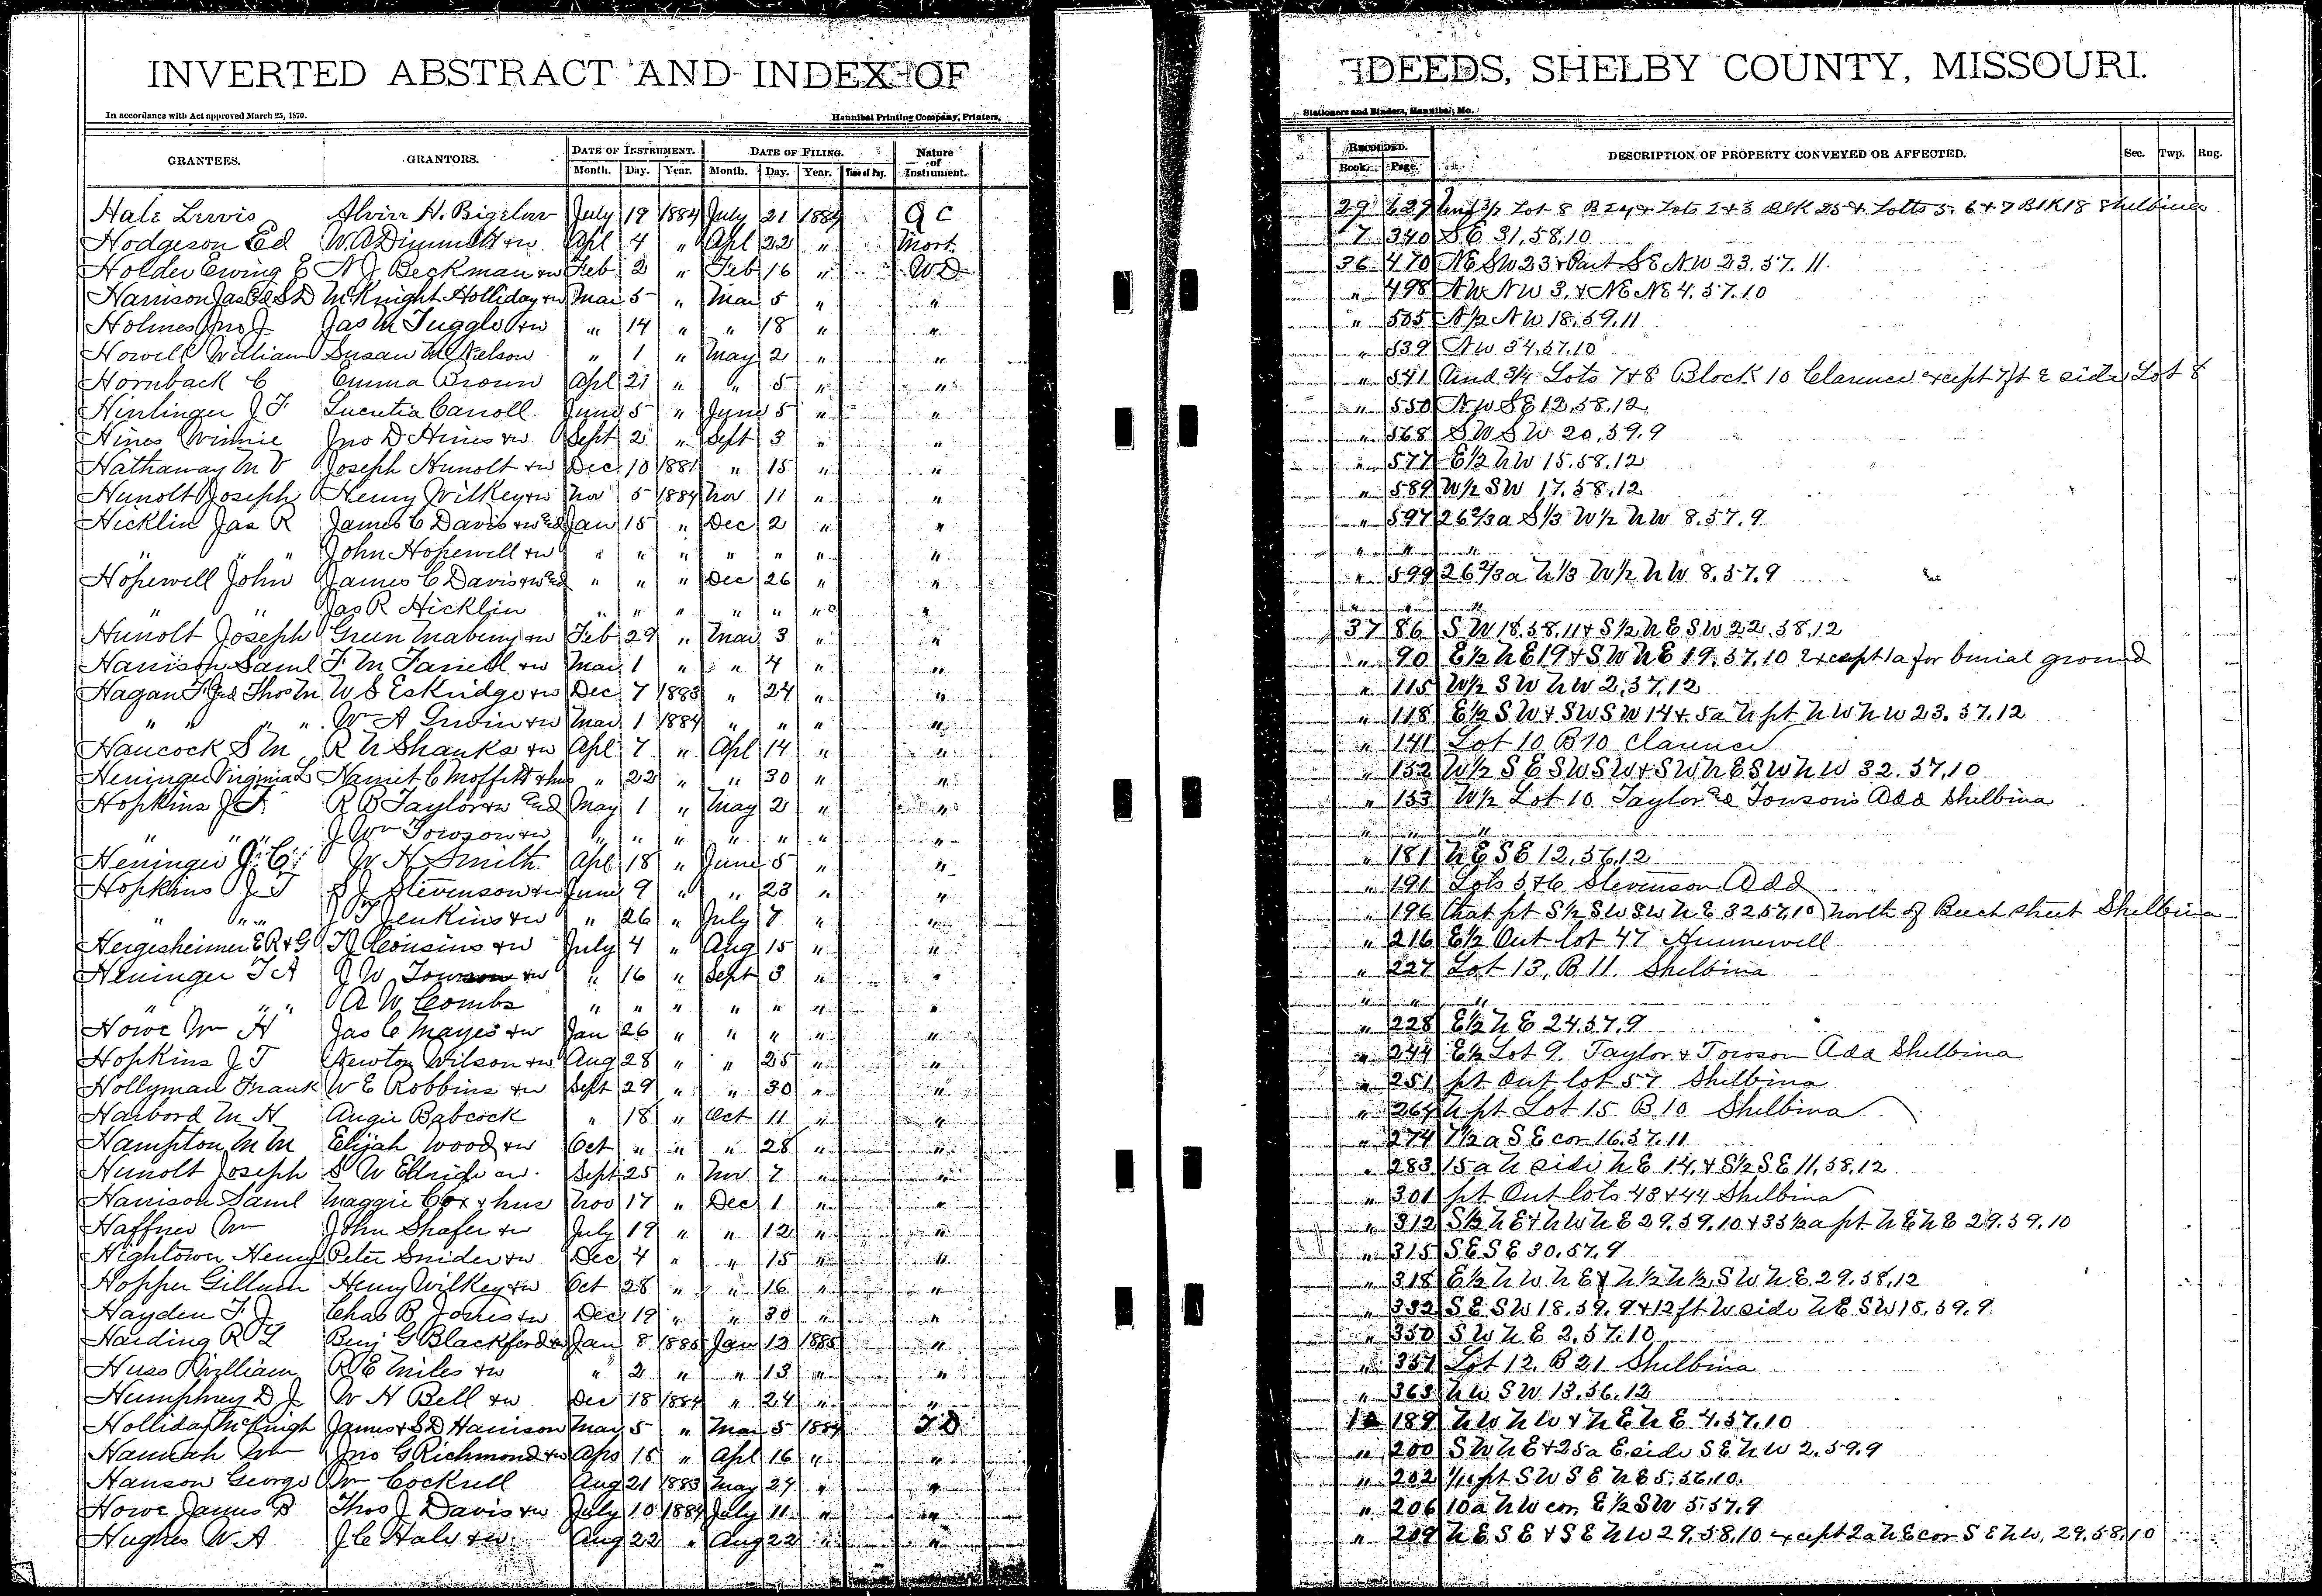 INVERTED ABSTRACT AND INDEX OF DEEDS, SHELBY COUNTY, MISSOURI.
In accordance with Act approved March 25, 1870. Hannibal Printing Company, Printers, Stationers and Binders, Hannibal, Mo.
GRANTEES. GRANTORS. DATE OF INSTRUMENT. DATE OF FILING. Nature of Instrument. RECORDED. DESCRIPTION OF PROPERTY CONVEYED OR AFFECTED. Sec. Twp. Rng.
Month. Day. Year. Month. Day. Year. Time of Day. Book. Page.
Hale Lewis Alvin H. Bigelow July 19 1884 July 21 1884 Q C 29 629 Lot 8 B 24 + Lots 2 + 3 Blk 25 + Lotts 5. 6 + 7 Blk 18 Shelbina
Hodgeson Ed W. A Dimmitt + w Apl 4 " Apl 22 " Mort. 17 340 S E 31, 58, 10
Holder Ewing E N J. Beckman + w Feb 2 " Feb 16 " W D 36 470 NE SW 23 + Part SE NW 23. 57. 11.
Harrison Jas & S D McKnight Holliday + w Mar 5 " Mar 5 " " " 498 NW NW 3, + NE NE 4. 57. 10
Holmes Jno J. Jas M Tuggle + w " 14 " " 18 " " " 505 N ½ NW 18, 59. 11
Howell William Susan M Nelson " 1 " May 2 " " " 539 NW 34, 57, 10
Hornback C Emma Brown Apl 21 " " 5 " " " 541 Und 3/4 Lots 7 + 8 Block 10 Clarence except 7 ft E side Lot 8
Hinlinger J F Lucretia Carroll June 5 " June 5 " " " 550 NW SE 12, 58, 12
Hines Winnie Jno D Hines + w Sept 2 " Sept 3 " " " 568 S W S W 20, 59. 9
Hathaway M V Joseph Hunolt + w Dec 10 1881 " 15 " " " 577 E ½ NW 15. 58, 12
Hunolt Joseph Henry Wilkey + w Nov 5 1884 Nov 11 " " " 589 W ½ SW 17. 58, 12
Hicklin Jas R James C Davis + w & Jan 15 " Dec 2 " " " 597 26 2/3 a S 1/3 W ½ NW 8. 57. 9
" " " John Hopewell + w " " " " " " " " " "
Hopewell John James C Davis + w & " " " Dec 26 " " " 599 26 2/3 a N 1/3 W ½ NW 8. 57. 9
" " Jas R Hicklin " " " " " " " " " "
Hunolt Joseph Green Mabury + w Feb 29 " Mar 3 " " 37 86 S W 18. 58. 11 + S ½ N E S W 22. 58. 12
Harrison Saml F. M Farrell + w Mar 1 " " 4 " " " 90 E ½ N E 19 + S W N E 19. 57. 10 Except 1 a for burial ground
Hagan T J & Thos M W S Eskridge + w Dec 7 1883 " 24 " " " 115 W ½ S W N W 2, 57, 12
" " " " Wm A Irwin + w Mar 1 1884 " " " " " 118 E ½ S W + SW SW 14 + 5 a N pt N W N W 23. 57. 12
Hancock S M R N Shanks + w Apl 7 " Apl 14 " " " 141 Lot 10 B 10 Clarence
Heninger Virginia L Harriet C Moffett + hus " 22 " " 30 " " " 152 W ½ S E SW SW + SW N E SW N W 32. 57, 10
Hopkins J T. R B Taylor + w and May 1 " May 2 " " " 153 W ½ Lot 10 Taylor & Towsons Add Shelbina
" " " J Wm Towson + w " " " " " " " " "
Heninger J. C. W H Smith. Apl 18 " June 5 " " " 181 N E S E 12, 56, 12
Hopkins J T S J Stevenson + w June 9 " " 23 " " " 191 Lots 5 + 6 Stevenson Add
" " " J T Jenkins + w " 26 " July 7 " " " 196 that pt S ½ SW SW N E 32 57, 10 North of Beech street Shelbina
Hergesheimer E R + G H Cousins + w July 4 " Aug 15 " " " 216 E ½ Out lot 47 Hunnewell
Heninger T A J W Towson + w " 16 " Sept 3 " " " 227 Lot 13, B 11. Shelbina
" " " A W Combs " " " " " " " " "
Howe Wm H Jas C Mayes + w Jan 26 " " " " " " 228 E ½ N E 24. 57. 9
Hopkins J T Newton Wilson + w Aug 28 " " 25 " " " 244 E ½ Lot 9. Taylor + Towson Add Shelbina
Hollyman Frank W E Robbins + w Sept 29 " " 30 " " " 251 pt Out lot 57 Shelbina
Harbord M H Angie Babcock " 18 " Oct 11 " " " 264 N pt Lot 15 B 10 Shelbina
Hampton M M Elijah Wood + w Oct " " " 28 " " " 274 7 ½ a S E cor 16. 57. 11
Hunolt Joseph S W + w. Sept 25 " Nov 7 " " " 283 15 a N side N E 14, + S ½ S E 11, 58, 12
Harrison Saml Maggie Cox + hus Nov 17 " Dec 1 " " " 301 pt Out lots 43 + 44 Shelbina
Haffner Wm John Shafer + w July 19 " " 12 " " " 312 S ½ N E + N W N E 29. 59. 10 + 35 ½ a pt N E N E 29. 59. 10
Hightower Henry Peter Snider + w Dec 4 " " 15 " " " 315 S E S E 30. 57. 9
Hopper Gillum Henry Wilkey + w Oct 28 " " 16 " " " 318 E ½ N W N E + N ½ N ½ S W N E. 29. 58, 12
Hayden F. J. Chas B Jones + w Dec 19 " " 30 " " " 332 S E SW 18, 59. 9 + 12 ft W side N E SW 18. 59. 9.
Harding R Y Benj G Blackford + w Jan 8 1885 Jan 12 1885 " " 350 S W N E 2, 57. 10
Huss William R E Miles + w " 2 " " 13 " " " 351 Lot 12. B 21 Shelbina
Humphrey D J W H Bell + w Dec 18 1884 " 24 " " " 363 N W SW. 13, 56. 12
Holliday McKnigh James + S D Harrison May 5 " Mar 5 1884 T D 12 189 N W N W + N E N E 4. 57. 10
Hannah Wm Jno G Richmond + w Apr 15 " Apl 16 " " " 200 S W N E + 25 a E. side S E N W 2. 59. 9
Hanson George Wm Cockrell Aug 21 1883 May 24 " " " 202 pt S W S E N E 5. 56, 10.
Howe James B Thos J Davis + w July 10 1884 July 11 " " " 206 10 a N W cor. E ½ SW 5. 57. 9
Hughes W. A J C Hale + w Aug 22 " Aug 22 " " " 209 N E S E + S E N W 29, 58. 10 except 2 a N E cor S E N W, 29. 58, 10